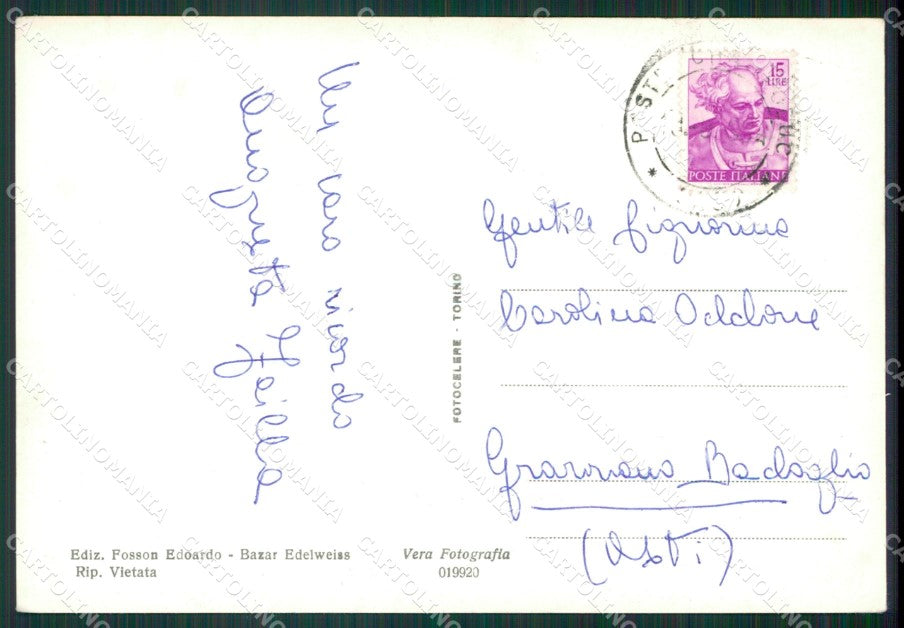 Un caro ricordo
Gentile Signorina
Carolina Oddone
Grazzano Badoglio
(Asti)
15
LIRE
POSTE ITALIANE
POSTE
FOTOCELERE - TORINO
Ediz. Fosson Edoardo - Bazar Edelweiss
Rip. Vietata
Vera Fotografia
019920
CARTOLINOMANIA